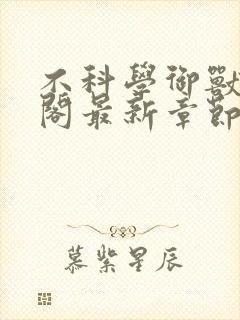 不科學御獸
閣最新章節
慕紫星辰